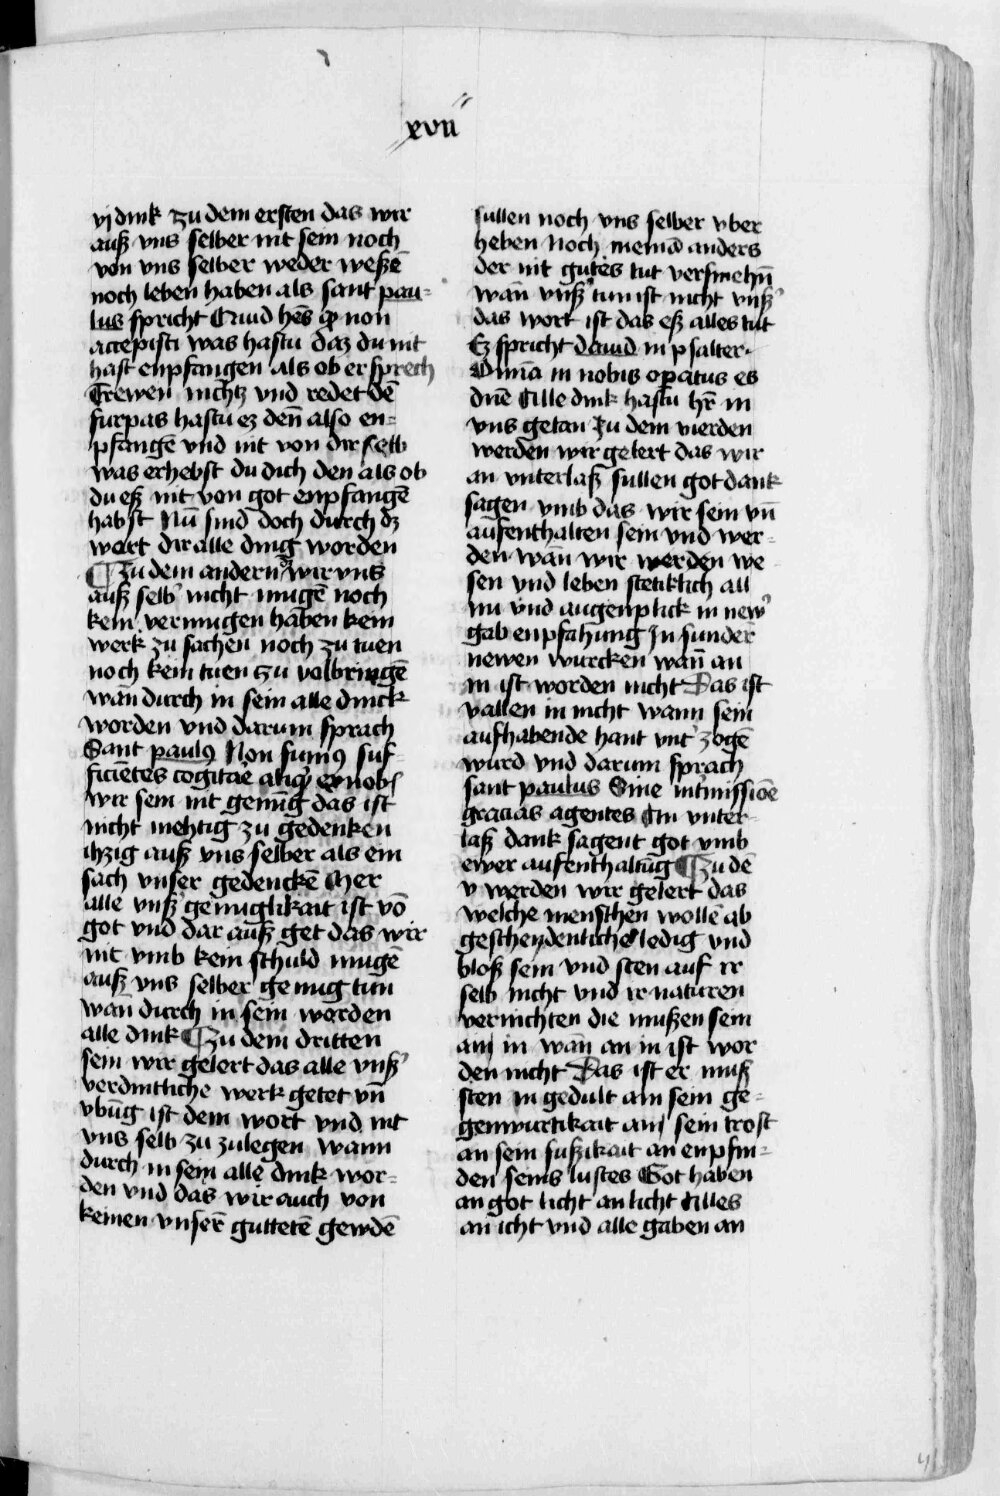 xvii
vj dink zu dem ersten das wir
auß vns selber nit sein noch
von vns selber weder weßē
noch leben haben als sant pau-
lus spricht Quid hēs qͥ non
accepisti was hastu daz du nit
hast enpfangen als ob er sprech
Trewen nichtz vnd redet dē
furpas hastu ez deñ also en-
pfangē vnd nit von dir selb
was erhebst du dich den als ob
du eß nit von got enpfangē
habst Nū sind doch durch dz
wort dir alle ding worden
Zu dem andern wir vns
auß selb' nicht mugē noch
kein vermugen haben kein
werk zu sachen noch zu tuen
noch kein tuen zu volbringē
wan durch in sein alle dinck
worden vnd darum sprach
Sant paulꝰ Non sumꝰ suf-
ficiētes cogitare aliqͥ ex nobͥs
wir sein nit genūg das ist
nicht mehtig zu gedenken
ihzig auß vns selber als ein
sach vnser gedenckē Mer
alle vnß' genuglikait ist vō
got vnd dar auß get das wir
nit vmb kein schuld mugē
auß vns selber genug tun
wan durch in sein worden
alle dink Zu dem dritten
sein wir gelert das alle vnß'
verdintliche werk getet vñ
vbūg ist dem wort vnd nit
vns selb zu zulegen wann
durch in sein alle dink wor-
den vnd das wir auch von
keinen vnsern guttetē gewdē
sullen noch vns selber vber
heben Noch niemā anders
der nit gutes tut versmehñ
wān vnß' tun ist nicht vnß'
das wort ist das eß alles tut
Ez spricht dauid in psalter
Omīa in nobis opatus es
dne Alle dink hastu hr̄ in
vns getan Zu dem vierden
werden wir gelert das wir
an vnterlaß sullen got dank
sagen vmb das wir sein vñ
aufenthalten sein vnd wer-
den wān wir werden we
sen vnd leben stetiklich all
nu vnd augenplick in new'
gab enpfahung In sunder
newen wurcken wan̄ an
in ist worden nicht Das ist
vallen in nicht wann sein
aufhabende hant vnt' zogē
wurd vnd darum sprach
sant paulus Sine int'missiōe
gracias agentes An vnter-
laß dank sagent got vmb
ewer aufenthaltūg Zu dē
v werden wir gelert das
welche menschen wollē ab
gescheydenliche ledig vnd
bloß sein vnd sten auf ir
selb nicht vnd ir naturen
vernichten die mußen sein
an in wān an in ist wor
den nicht Das ist er muß
sten in gedult an sein ge-
genwurtikait an sein trost
an sein sußikait an enpfin-
den seins lustes Got haben
an got licht an licht Alles
an icht vnd alle gaben an